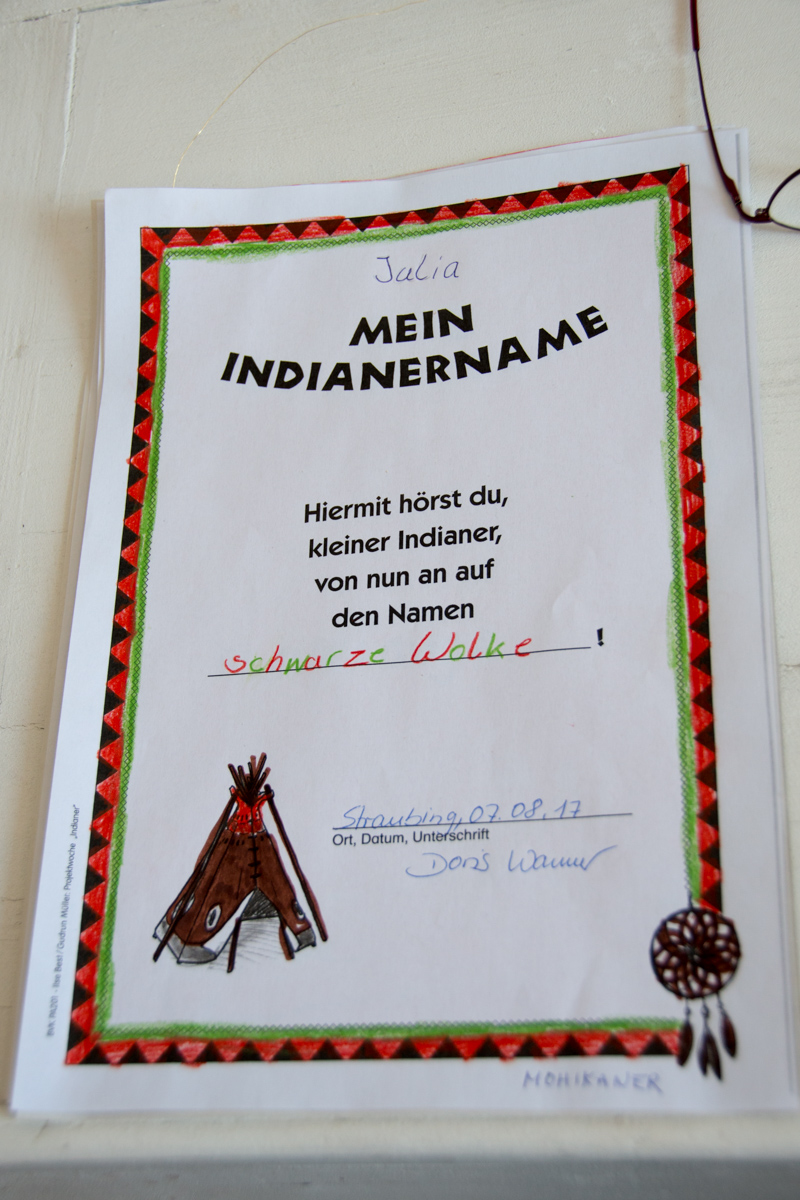 Julia
MEIN
INDIANERNAME
Hiermit hörst du,
kleiner Indianer,
von nun an auf
den Namen
schwarze Wolke !
Straubing, 07.08.17
Ort, Datum, Unterschrift
Doris Wanner
BVK PA201 · Ilse Best / Gudrun Müller: Projektwoche „Indianer"
MOHIKANER